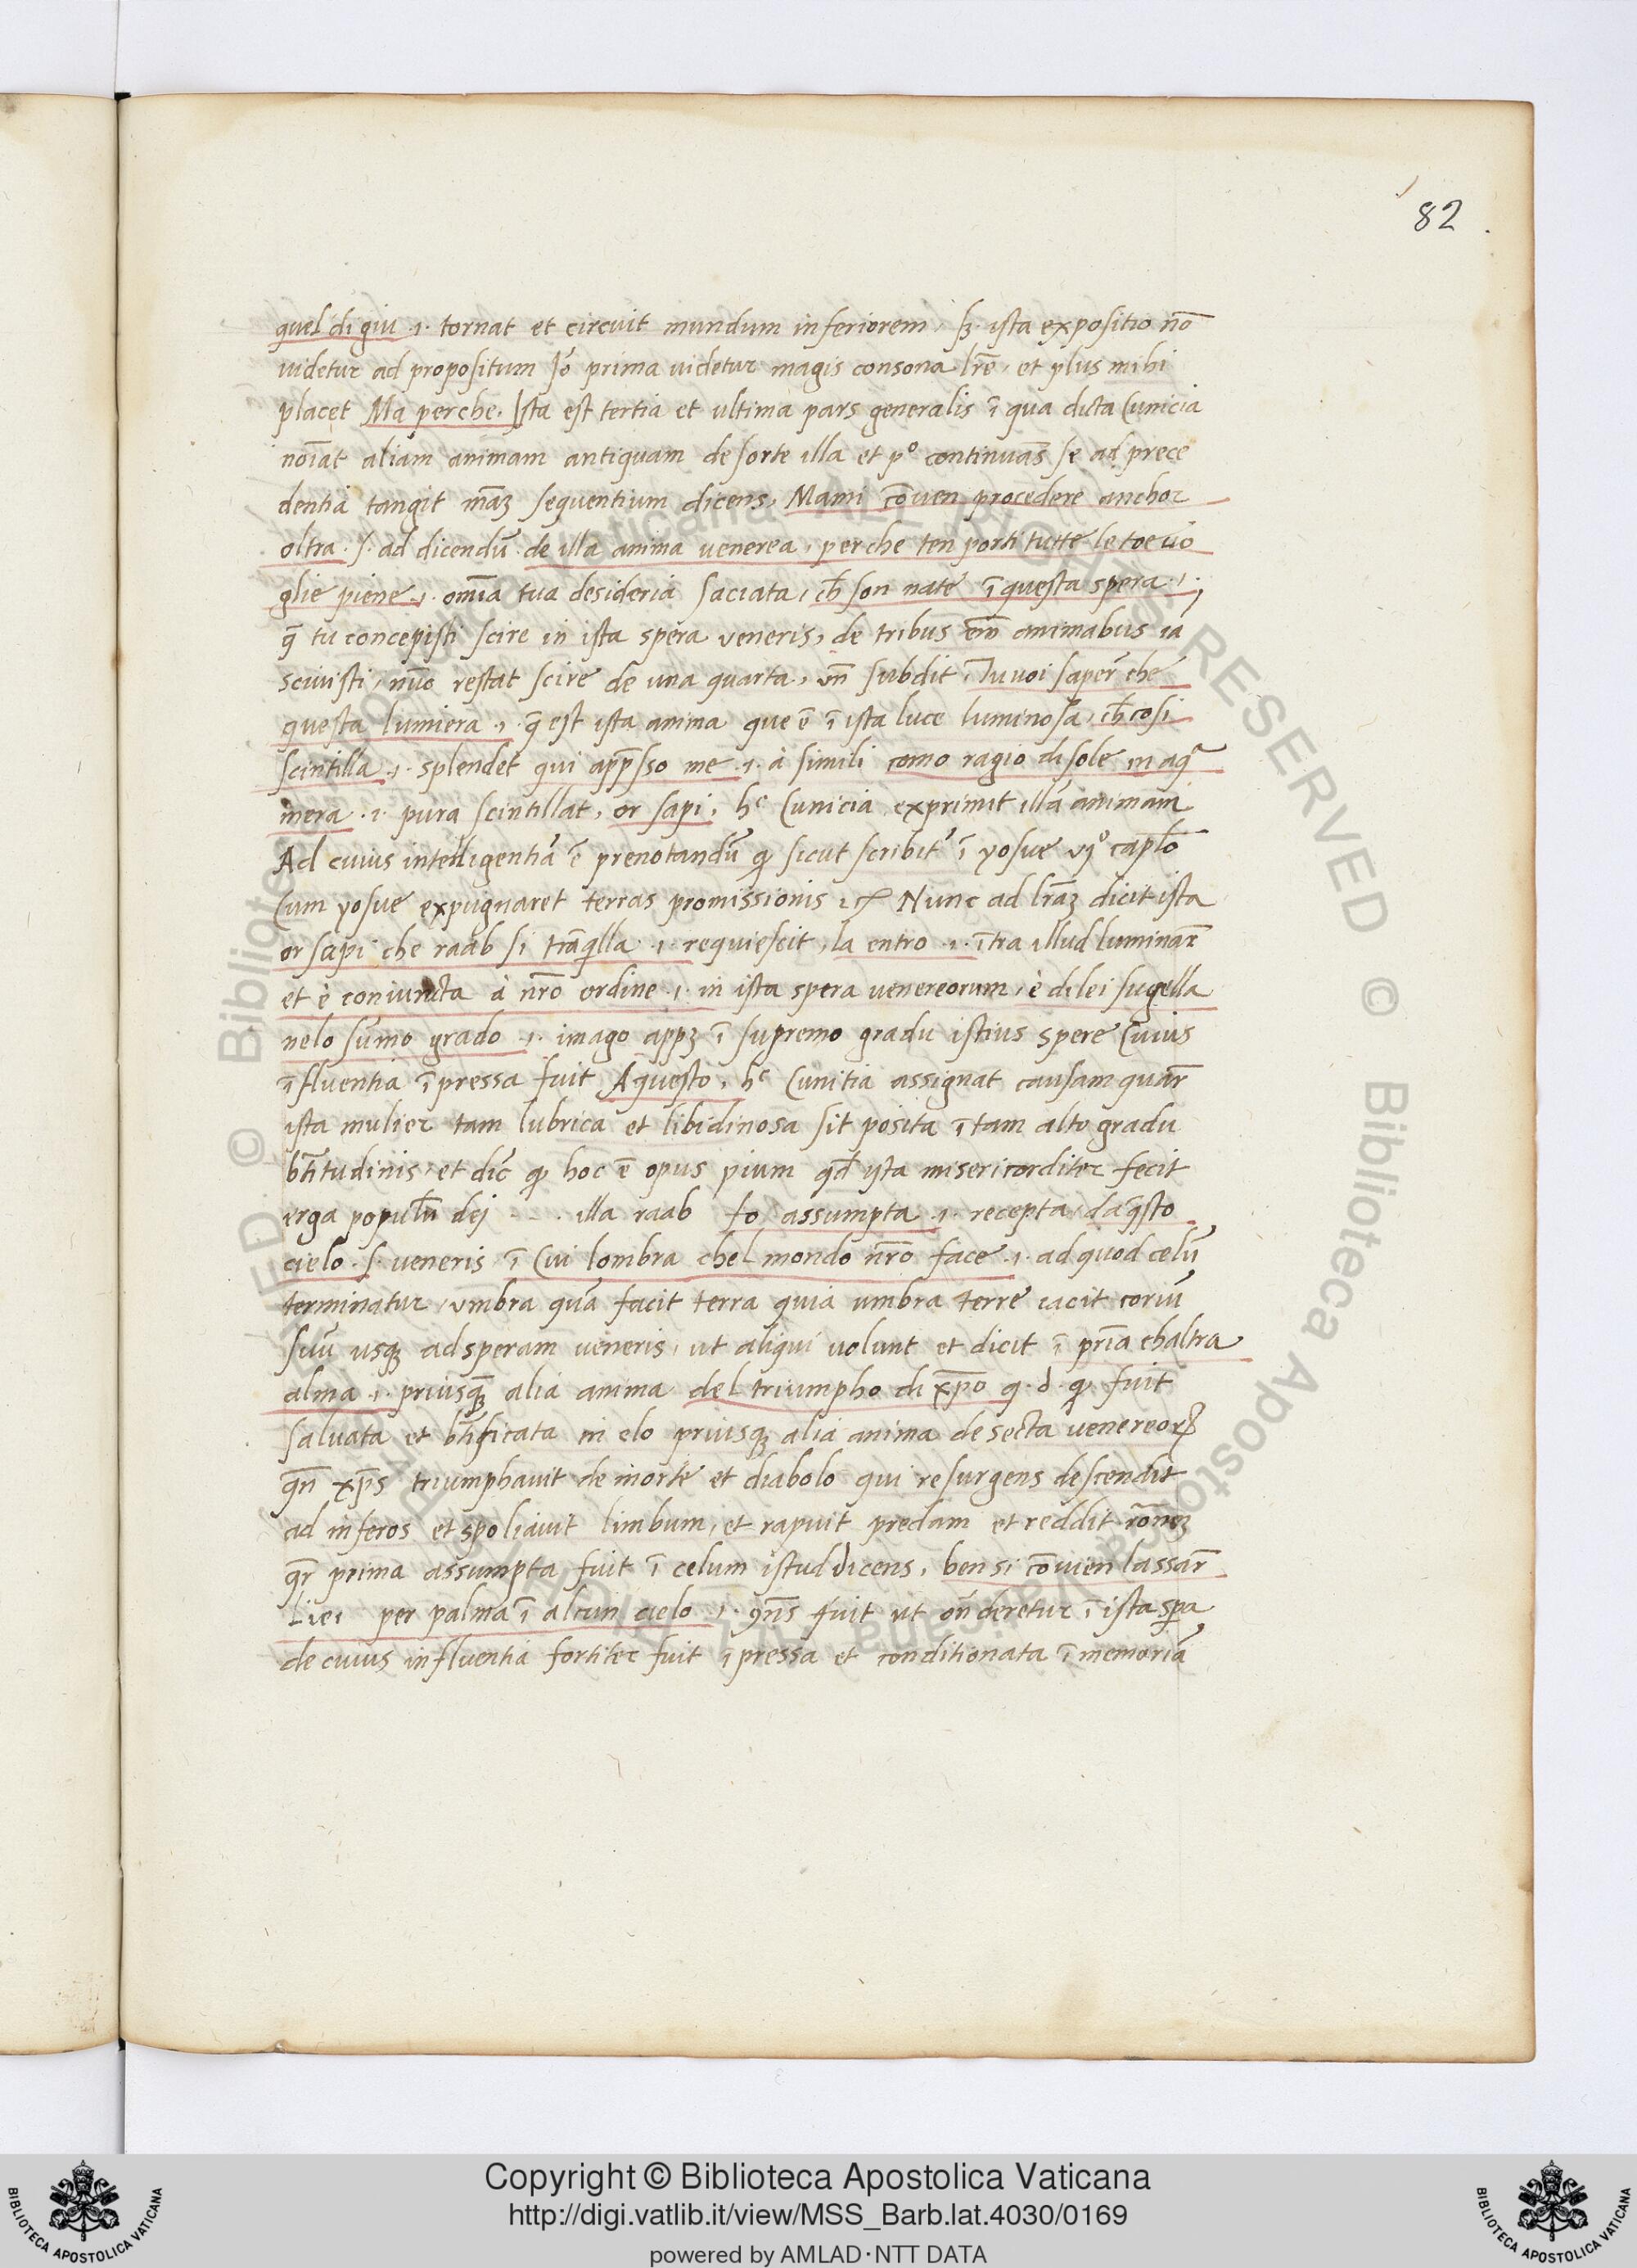 82
quel di giu .1. tornat et circuit mundum inferiorem, sꝫ ista expositio nō
videtur ad propositum Jō prima videtur magis consona lr̄e, et plus mihi
placet Ma perche. Ista est tertia et ultima pars generalis ī qua dicta Cunicia
noīat aliam animam antiquam de sorte illa et pº continuās se ad prece
dentia tangit māꝫ sequentium dicens, Mami cōven procedere anchor
oltra .s. ad dicendū de illa anima venerea, perche ten porti tutte le toe vo
glie piene .1. om̄ia tua desideria saciata, ch̄ son nate ī questa spera .1.
q̄ tu concepisti scire in ista spera veneris, de tribus em̄ animabus ia
scivisti, nūo restat scire de una quarta, vn̄ subdit, Tu voi saper̄ che
questa lumiera .1. q̄ est ista anima que ē ī ista luce luminosa, ch̄ cosi
scintilla .1. splendet qui app̄sso me .1. à simili como ragio di sole in aqᵃ
mera .1. pura scintillat, or sapi, hᶜ Cunicia exprimit illā animam
Ad cuius intelligentiā ē prenotandū ꝙ sicut scribit᷑ ī yosue vjº capl̄o
Cum yosue expugnaret terras promissionis ⁊c̄ Nunc ad lr̄aꝫ dicit ista
or sapi che raab si trāq̄lla .1. requiescit, la entro .1. ītra illud luminar̄
et è coniuncta à nr̄o ordine .1. in ista spera venereorum, è di lei sugella
nelo sūmo grado .1. imago appꝫ ī supremo gradu istius spere Cuius
īfluentia īpressa fuit Aquesto, hᶜ Cunitia assignat causam quar̄
ista mulier tam lubrica et libidinosa sit posita ī tam alto gradu
bt̄itudinis, et dic̄ ꝙ hoc ē opus pium qd̄ ysta misericorditer fecit
erga populū dej - - . illa raab fo assumpta .1. recepta, da q̄sto
cielo .s. veneris, ī Cui lombra chel mondo nr̄o face .1. ad quod celū
terminatur, umbra quā facit terra quia umbra terre iacit coriū
suū usqꝫ ad speram veneris, ut aliqui volunt et dicit ī pr̄ia chaltra
alma .1. priusq̄ꝫ alia anima del triumpho di xp̄o q.d. ꝙ fuit
salvata et bt̄ificata in elo priusqꝫ alia anima de secta venereoꝝ
qn̄ xp̄s triumphavit de morte et diabolo qui resurgens descendit
ad inferos et spoliavit limbum, et rapuit predam et reddit rōneꝫ
qr̄ prima assumpta fuit ī celum istud dicens, ben si cōvien lassar̄
Liei per palma ī alcun cielo .1. ꝯn̄s fuit ut on̄deretur ī ista sp̄a
de cuius influentia fortiter fuit īpressa et conditionata ī memoriā
Copyright © Biblioteca Apostolica Vaticana
http://digi.vatlib.it/view/MSS_Barb.lat.4030/0169
powered by AMLAD·NTT DATA